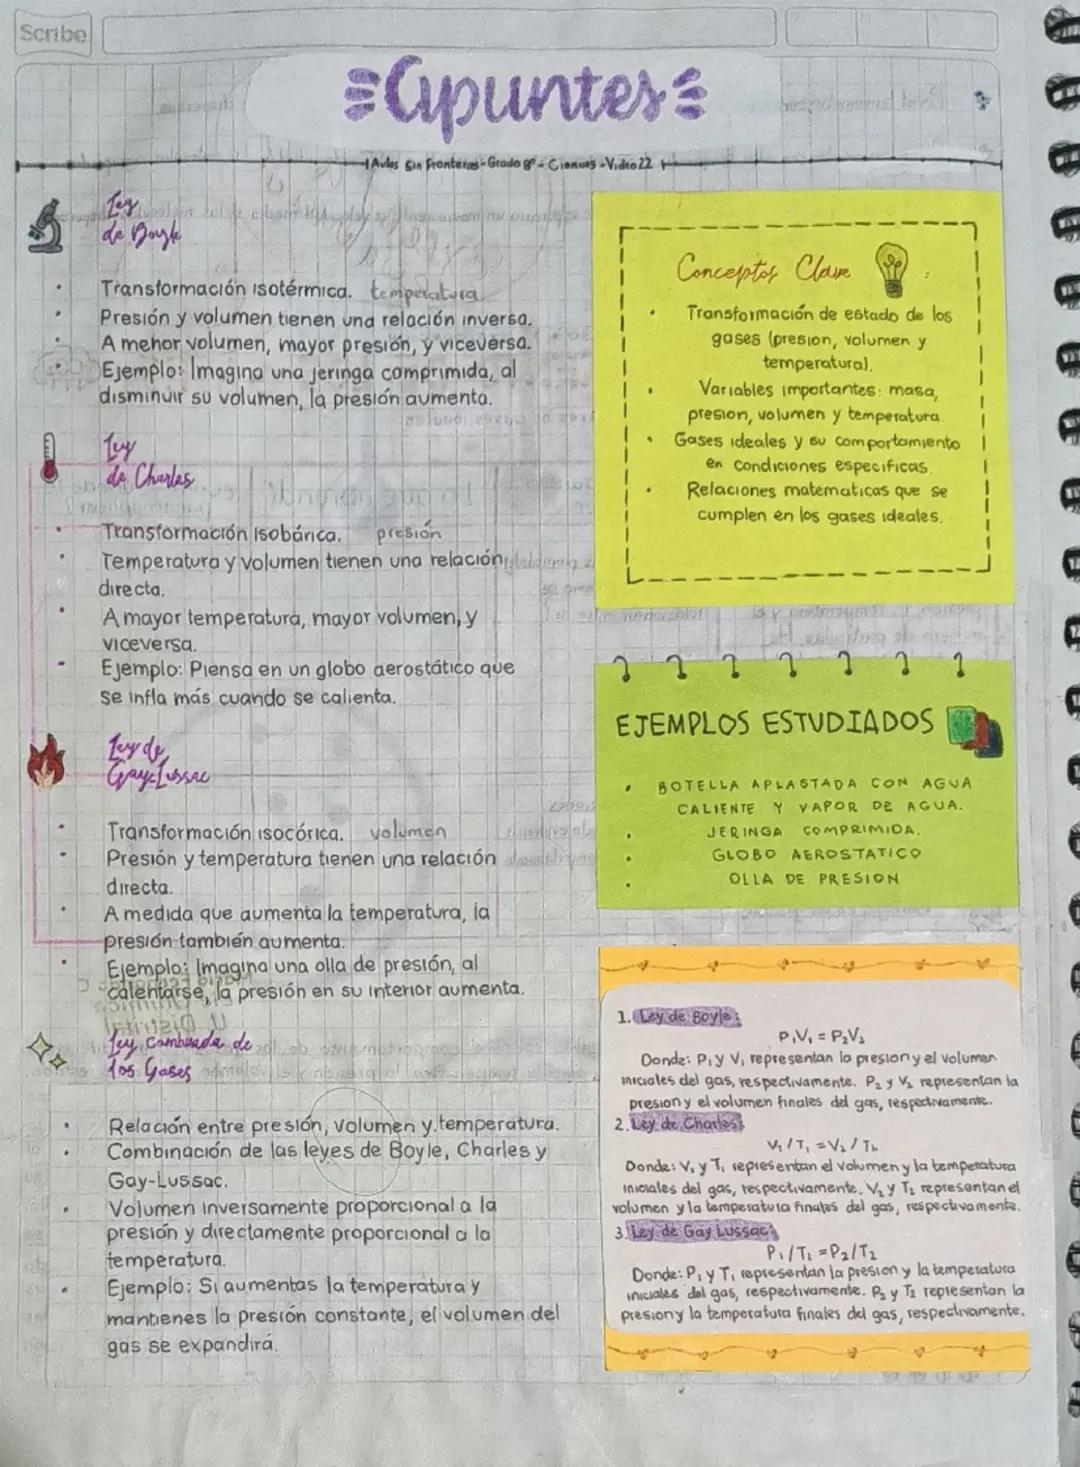 Scribe
Apuntes
Aulas Sin Fronteras - Grado 8º - Ciencias - Video 22
Ley
de Boyle
• Transformación isotérmica. temperatura
• Presión y volumen tienen una relación inversa.
• A menor volumen, mayor presión, y viceversa.
• Ejemplo: Imagina una jeringa comprimida, al
disminuir su volumen, la presión aumenta.
Ley
de Charles
• Transformación Isobárica. presión
• Temperatura y volumen tienen una relación
directa.
• A mayor temperatura, mayor volumen, y
viceversa.
• Ejemplo: Piensa en un globo aerostático que
se infla más cuando se calienta.
Ley de
Gay-Lussac
• Transformación isocórica. volumen
• Presión y temperatura tienen una relación
directa.
• A medida que aumenta la temperatura, la
presión también aumenta.
• Ejemplo: Imagina una olla de presión, al
calentarse, la presión en su interior aumenta.
Ley Combinada de
los Gases
• Relación entre presión, volumen y temperatura.
• Combinación de las leyes de Boyle, Charles y
Gay-Lussac.
• Volumen inversamente proporcional a la
presión y directamente proporcional a la
temperatura.
• Ejemplo: Si aumentas la temperatura y
mantienes la presión constante, el volumen del
gas se expandirá.
Conceptos Clave
• Transformación de estado de los
gases (presion, volumen y
temperatura).
• Variables importantes: masa,
presion, volumen y temperatura.
• Gases ideales y su comportamiento
en condiciones especificas.
• Relaciones matematicas que se
cumplen en los gases ideales.
EJEMPLOS ESTUDIADOS
• BOTELLA APLASTADA CON AGUA
CALIENTE Y VAPOR DE AGUA.
• JERINGA COMPRIMIDA.
• GLOBO AEROSTATICO
• OLLA DE PRESION
1. Ley de Boyle:
P₁V₁ = P₂V₂
Donde: P₁ y V₁ representan la presion y el volumen
iniciales del gas, respectivamente. P₂ y V₂ representan la
presion y el volumen finales del gas, respectivamente.
2. Ley de Charles:
V₁ / T₁ = V₂ / T₂
Donde: V₁ y T₁ representan el volumen y la temperatura
iniciales del gas, respectivamente. V₂ y T₂ representan el
volumen y la temperatura finales del gas, respectivamente.
3. Ley de Gay Lussac:
P₁ / T₁ = P₂ / T₂
Donde: P₁ y T₁ representan la presion y la temperatura
iniciales del gas, respectivamente. P₂ y T₂ representan la
presion y la temperatura finales del gas, respectivamente.